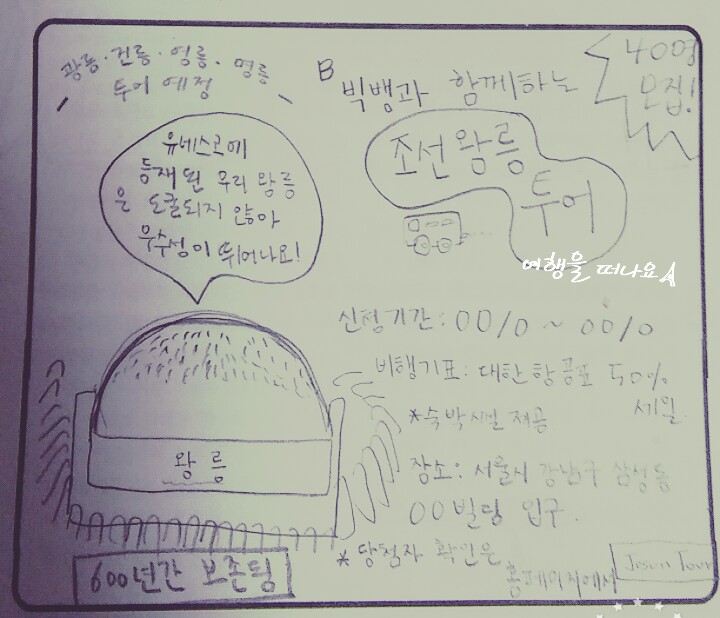 광릉·건릉·영릉·명릉
투어 예정
유네스코에
등재된 우리 왕릉
은 도굴되지 않아
우수성이 뛰어나요!
왕릉
600년간 보존됨
B
빅뱅과 함께하는
40명
모집!
조선 왕릉
투어
여행을 떠나요
신청기간: 00/0 ~ 00/0
비행기표: 대한항공표 50%
세일
*숙박시설 제공
장소: 서울시 강남구 삼성동
00빌딩 입구.
* 당첨자 확인은
홈페이지에서
Josun Tour